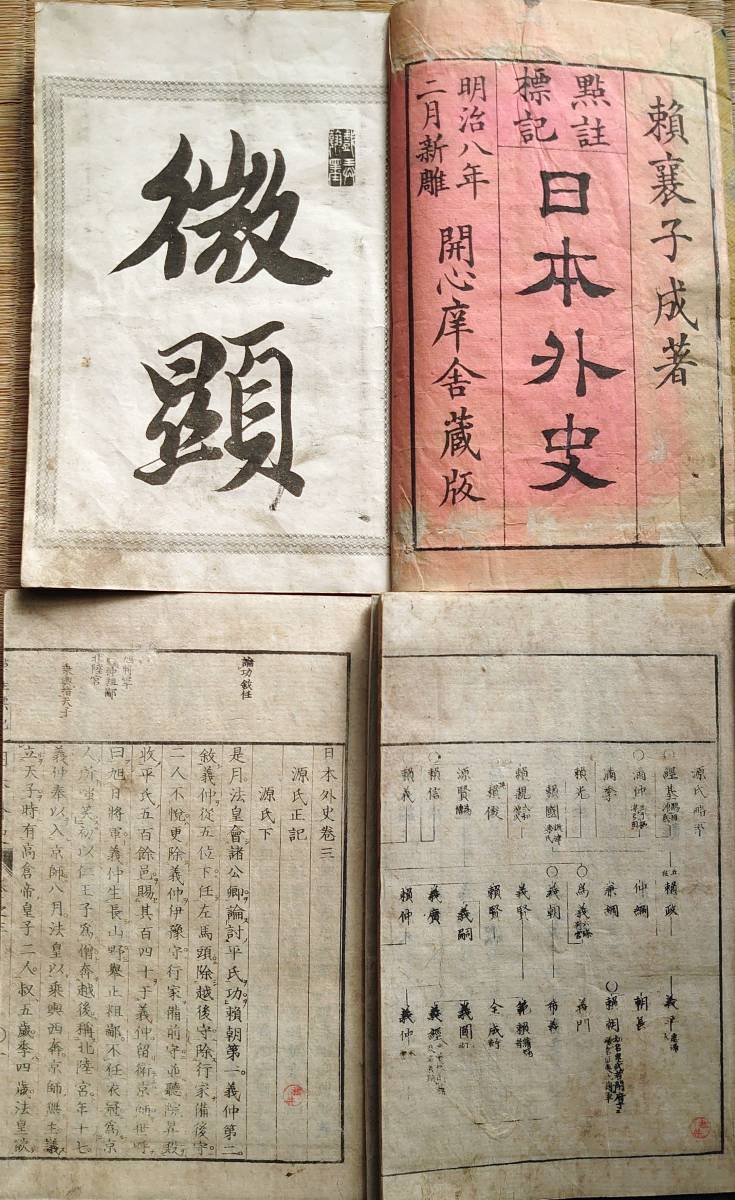 賴襄子成著
點註
標記
日本外史
明治八年
二月新雕
開心庠舍蔵版
微
顯
源氏略
經基
滿仲
滿季
賴光
賴國
賴親
賴信
賴義
源賢
賴政
仲綱
兼綱
爲義
義朝
義賢
賴賢
義嗣
義廣
賴仲
義平
朝長
賴朝
義門
希義
範賴
全成
義圓
義經
義仲
論功敘任
北陸宮
日本外史卷三
源氏正記
源氏下
是月法皇會諸公卿論討平氏功賴朝第一義仲第二
敘義仲從五位下任左馬頭除越後守除行家備後守
二人不悅更除義仲伊豫守行家備前守並聽院昇殿
收平氏五百餘邑賜其百四十于義仲留衛京師世呼
曰旭日將軍義仲生長山野擧止粗鄙不任衣冠爲京
人所嗤笑初以仁王子爲僧奔越後稱北陸宮年十七
義仲奉以入京師八月法皇以乘輿西奔京師無主議
立天子時有高倉帝皇子二人叔五歲季四歲法皇欲